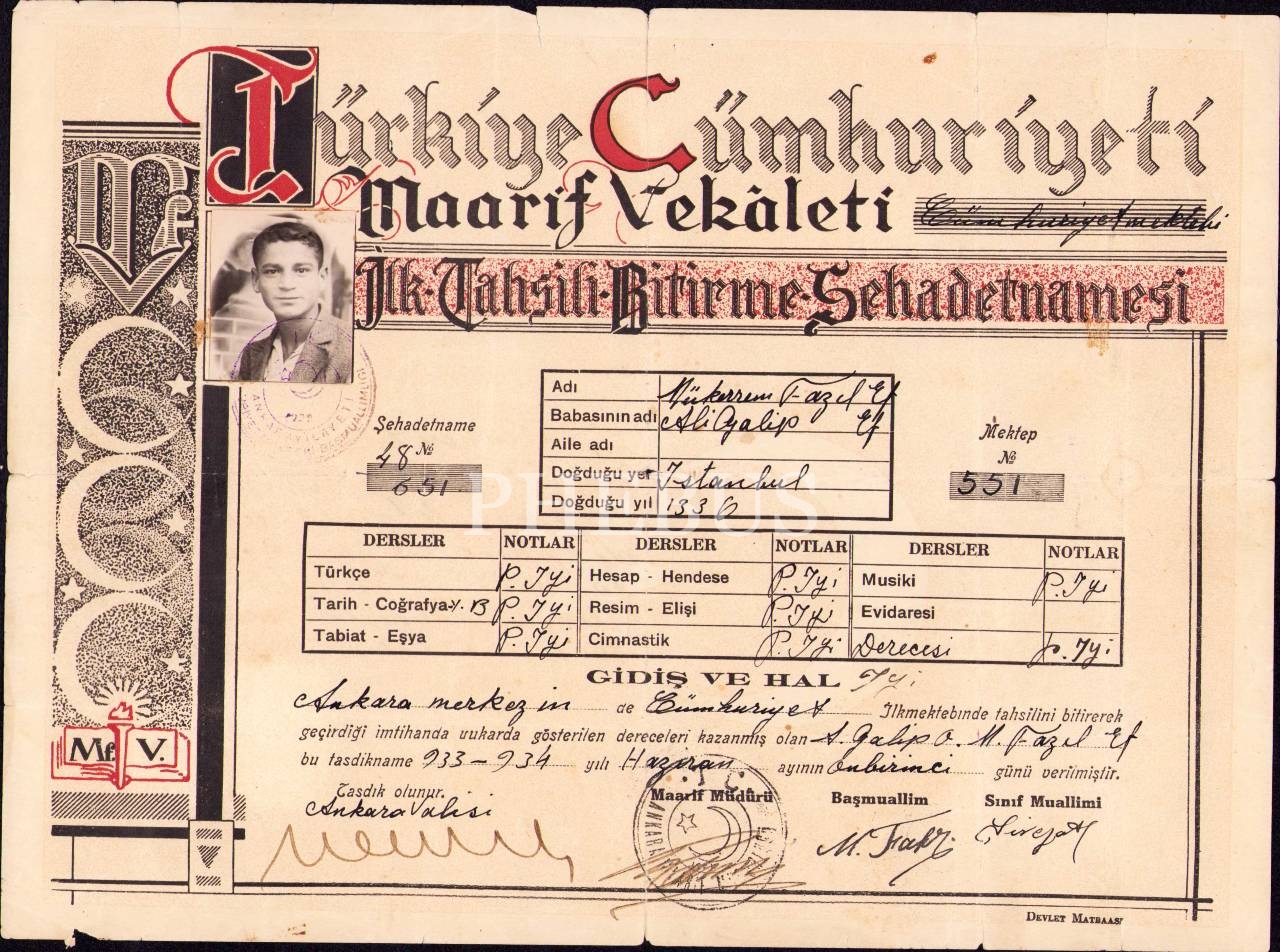 Türkiye Cümhuriyeti
Maarif Vekâleti Cümhuriyet mektebi
İlk-Tahsili-Bitirme-Şehadetnamesi
Mf
Adı Mükerrem Fazıl Ef
Babasının adı Ali Galip Ef
Aile adı
Doğduğu yer İstanbul
Doğduğu yıl 1336
Şehadetname
48 №
651
Mektep
№
551
PHEBUS
DERSLER NOTLAR DERSLER NOTLAR DERSLER NOTLAR
Türkçe P. İyi Hesap - Hendese P. İyi Musiki P. İyi
Tarih - Coğrafya-Y. B P. İyi Resim - Elişi P. İyi Evidaresi
Tabiat - Eşya P. İyi Cimnastik P. İyi Derecesi P. İyi
GİDİŞ VE HAL İyi
Ankara merkezin de Cümhuriyet İlkmektebinde tahsilini bitirerek
geçirdiği imtihanda yukarda gösterilen dereceleri kazanmış olan A. Galip O. M. Fazıl Ef
bu tasdikname 933-934 yılı Haziran ayının onbirinci günü verilmiştir.
Tasdik olunur.
Ankara Valisi
Maarif Müdürü Başmuallim Sınıf Muallimi
T. C.
ANKARA
M. Fahri
Mf. V.
DEVLET MATBAASI